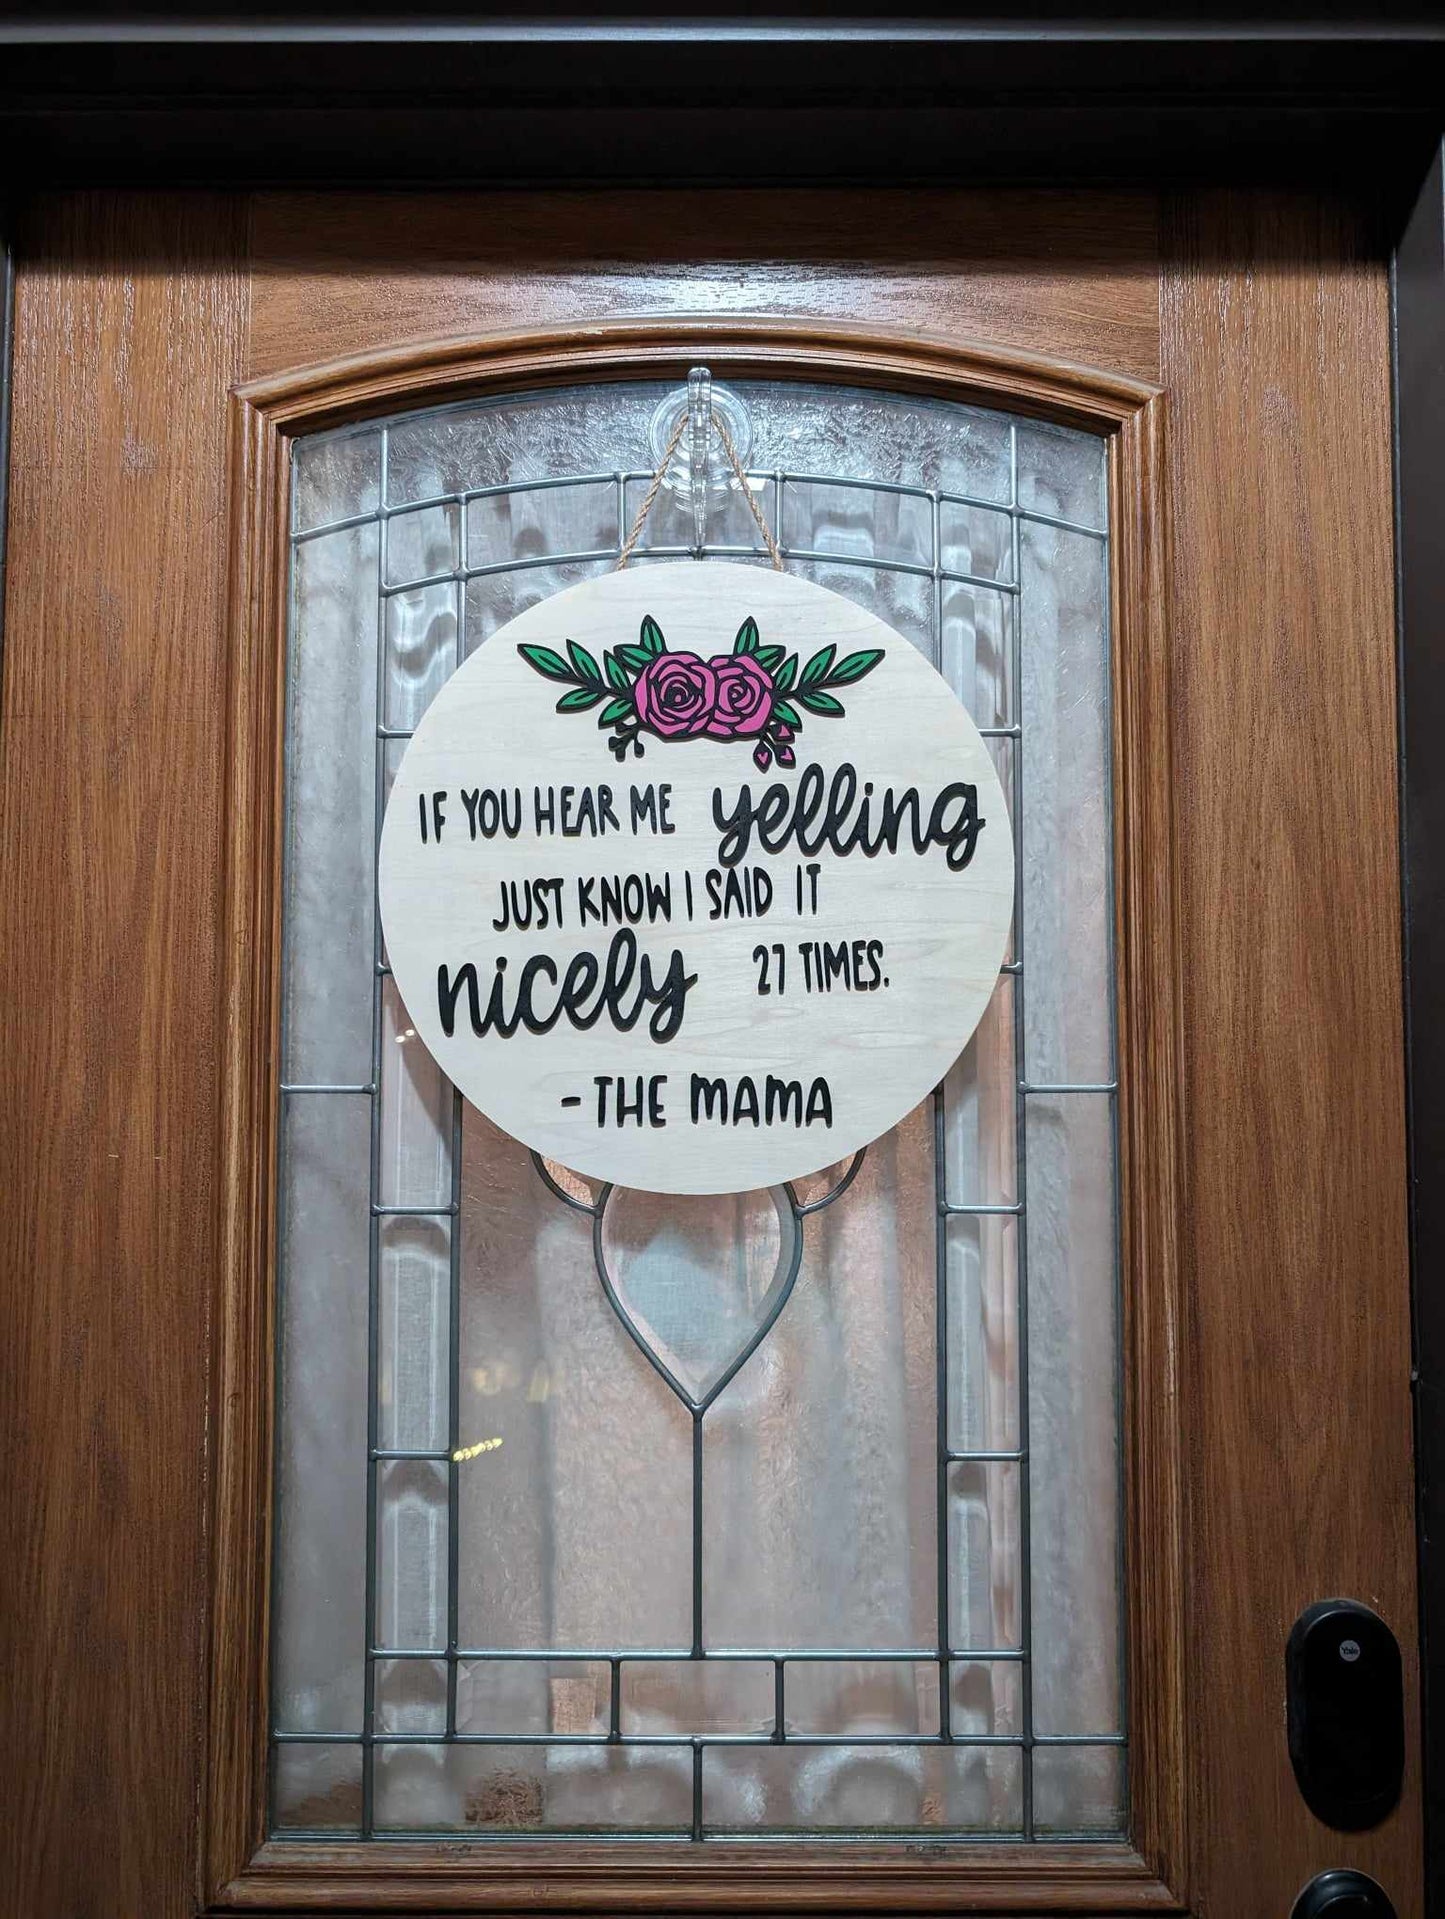 IF YOU HEAR ME yelling
JUST KNOW I SAID IT
nicely 27 TIMES.
-THE MAMA
Yale